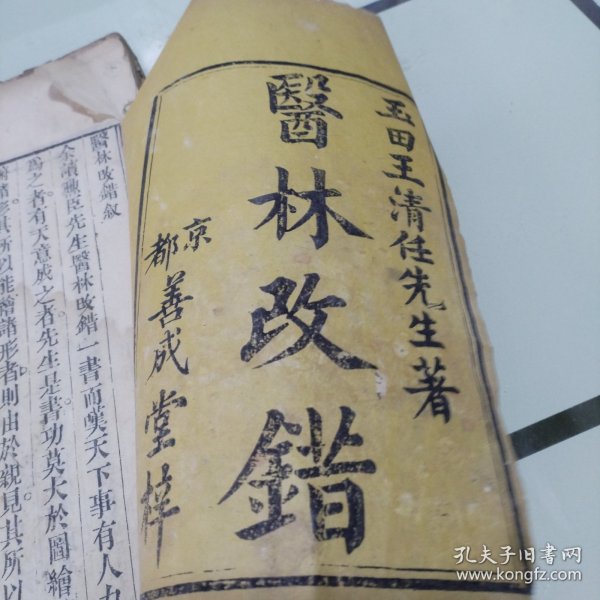 玉田王清任先生著
醫林改錯
京都善成堂梓
醫林改錯敘
余讀勲臣先生醫林改錯一書而嘆天下事有人力
為之者有天意成之者先生是書功莫大於圖繪
諸形者則由於親見其所以
孔夫子旧书网
www.kongfz.com